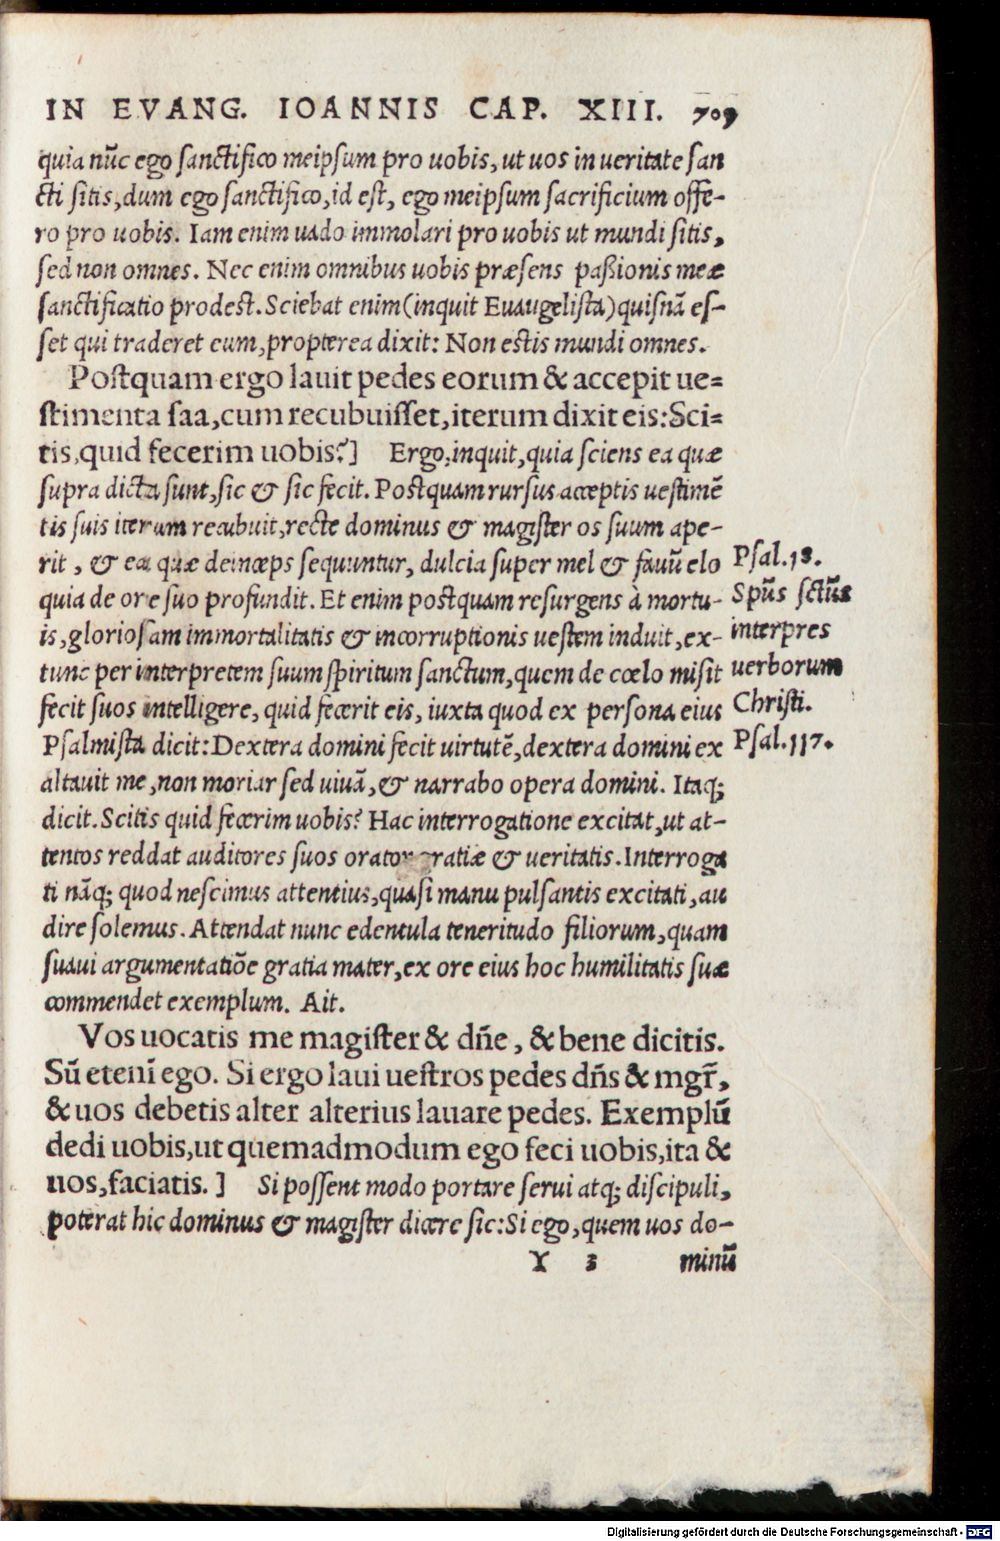 IN EVANG. IOANNIS CAP. XIII. 709
quia nūc ego sanctifico meipsum pro uobis, ut uos in ueritate san
cti sitis, dum ego sanctifico, id est, ego meipsum sacrificium offe-
ro pro uobis. Iam enim uado immolari pro uobis ut mundi sitis,
sed non omnes. Nec enim omnibus uobis præsens paßionis meæ
sanctificatio prodest. Sciebat enim (inquit Euaugelista) quisnā es-
set qui traderet eum, propterea dixit: Non estis mundi omnes.
Postquam ergo lauit pedes eorum & accepit ue=
stimenta saa, cum recubuisset, iterum dixit eis: Sci=
tis, quid fecerim uobis?] Ergo, inquit, quia sciens ea quæ
supra dicta sunt, sic & sic fecit. Postquam rursus acceptis uestimē
tis suis iterum recubuit, recte dominus & magister os suum ape-
rit, & ea quæ deinceps sequuntur, dulcia super mel & fauū elo
quia de ore suo profundit. Et enim postquam resurgens à mortu-
is, gloriosam immortalitatis & incorruptionis uestem induit, ex-
tunc per interpretem suum spiritum sanctum, quem de cœlo misit
fecit suos intelligere, quid fecerit eis, iuxta quod ex persona eius
Psalmista dicit: Dextera domini fecit uirtutē, dextera domini ex
altauit me, non moriar sed uiuā, & narrabo opera domini. Itaq;
dicit. Scitis quid fecerim uobis? Hac interrogatione excitat, ut at-
tentos reddat auditores suos orator gratiæ & ueritatis. Interroga
ti nāq; quod nescimus attentius, quasi manu pulsantis excitati, au
dire solemus. Attendat nunc edentula teneritudo filiorum, quam
suaui argumentatiōe gratia mater, ex ore eius hoc humilitatis suæ
commendet exemplum. Ait.
Vos uocatis me magister & dñe, & bene dicitis.
Sū etenī ego. Si ergo laui uestros pedes dñs & mgr̄,
& uos debetis alter alterius lauare pedes. Exemplū
dedi uobis, ut quemadmodum ego feci uobis, ita &
uos, faciatis.] Si possent modo portare serui atq; discipuli,
poterat hic dominus & magister dicere sic: Si ego, quem uos do-
Y 3 minū
Psal. 18.
Spūs sctūs
interpres
uerborum
Christi.
Psal. 117.
Digitalisierung gefördert durch die Deutsche Forschungsgemeinschaft - DFG